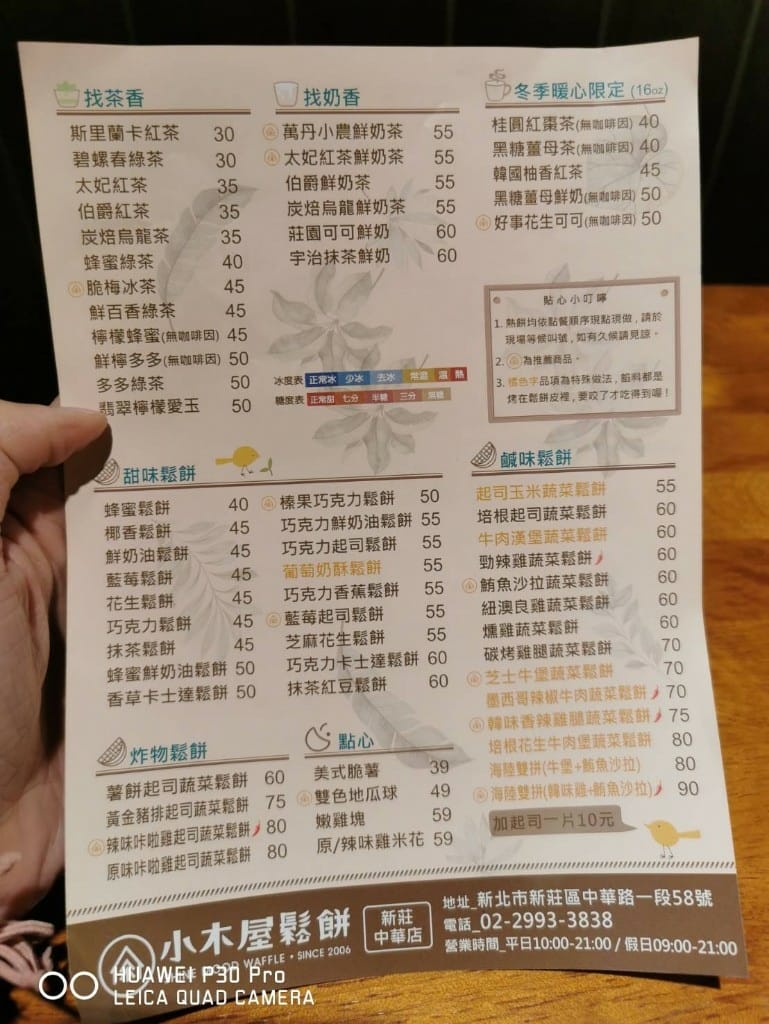 找茶香
斯里蘭卡紅茶 30
碧螺春綠茶 30
太妃紅茶 35
伯爵紅茶 35
炭焙烏龍茶 35
蜂蜜綠茶 40
脆梅冰茶 45
鮮百香綠茶 45
檸檬蜂蜜(無咖啡因) 45
鮮檸多多(無咖啡因) 50
多多綠茶 50
翡翠檸檬愛玉 50
找奶香
萬丹小農鮮奶茶 55
太妃紅茶鮮奶茶 55
伯爵鮮奶茶 55
炭焙烏龍鮮奶茶 55
莊園可可鮮奶 60
宇治抹茶鮮奶 60
冰度表 正常冰 少冰 去冰 常溫 溫 熱
糖度表 正常甜 七分 半糖 三分 無糖
冬季暖心限定 (16oz)
桂圓紅棗茶(無咖啡因) 40
黑糖薑母茶(無咖啡因) 40
韓國柚香紅茶 45
黑糖薑母鮮奶(無咖啡因) 50
好事花生可可(無咖啡因) 50
貼心小叮嚀
1. 熱餅均依點餐順序現點現做，請於
現場等候叫號，如有久候請見諒。
2. 為推薦商品。
3. 橘色字品項為特殊做法，餡料都是
烤在鬆餅皮裡，要咬了才吃得到喔！
甜味鬆餅
蜂蜜鬆餅 40
椰香鬆餅 45
鮮奶油鬆餅 45
藍莓鬆餅 45
花生鬆餅 45
巧克力鬆餅 45
抹茶鬆餅 45
蜂蜜鮮奶油鬆餅 50
香草卡士達鬆餅 50
榛果巧克力鬆餅 50
巧克力鮮奶油鬆餅 55
巧克力起司鬆餅 55
葡萄奶酥鬆餅 55
巧克力香蕉鬆餅 55
藍莓起司鬆餅 55
芝麻花生鬆餅 55
巧克力卡士達鬆餅 60
抹茶紅豆鬆餅 60
鹹味鬆餅
起司玉米蔬菜鬆餅 55
培根起司蔬菜鬆餅 60
牛肉漢堡蔬菜鬆餅 60
勁辣雞蔬菜鬆餅 60
鮪魚沙拉蔬菜鬆餅 60
紐澳良雞蔬菜鬆餅 60
燻雞蔬菜鬆餅 60
碳烤雞腿蔬菜鬆餅 70
芝士牛堡蔬菜鬆餅 70
墨西哥辣椒牛肉蔬菜鬆餅 70
韓味香辣雞腿蔬菜鬆餅 75
培根花生牛肉堡蔬菜鬆餅 80
海陸雙拼(牛堡+鮪魚沙拉) 80
海陸雙拼(韓味雞+鮪魚沙拉) 90
加起司一片10元
炸物鬆餅
薯餅起司蔬菜鬆餅 60
黃金豬排起司蔬菜鬆餅 75
辣味咔啦雞起司蔬菜鬆餅 80
原味咔啦雞起司蔬菜鬆餅 80
點心
美式脆薯 39
雙色地瓜球 49
嫩雞塊 59
原/辣味雞米花 59
小木屋鬆餅
FOOD WAFFLE • SINCE 2006
新莊
中華店
地址_新北市新莊區中華路一段58號
電話_02-2993-3838
營業時間_平日10:00-21:00 / 假日09:00-21:00
HUAWEI P30 Pro
LEICA QUAD CAMERA